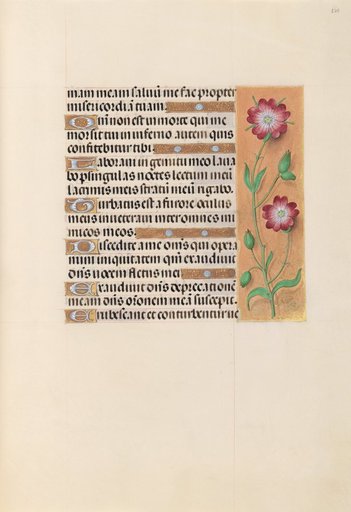 mam meam salvū me fac propter
misericordiā tuam.
Qm̄ non est in morte qui me
mor sit tui in inferno autem quis
confitebitur tibi.
Laboravi in gemitu meo lava
bo p singulas noctes lectum meū
lacrimis meis stratū meū rigabo.
Turbatus est a furore oculus
meus inveteravi inter omnes ini
micos meos.
Discedite a me om̄s qui opera
mini iniquitatem qm̄ exaudivit
dn̄s vocem fletus mei
Exaudivit dn̄s deprecationē
meam dn̄s orōnem meā suscepit.
Erubescant et conturbentur ve